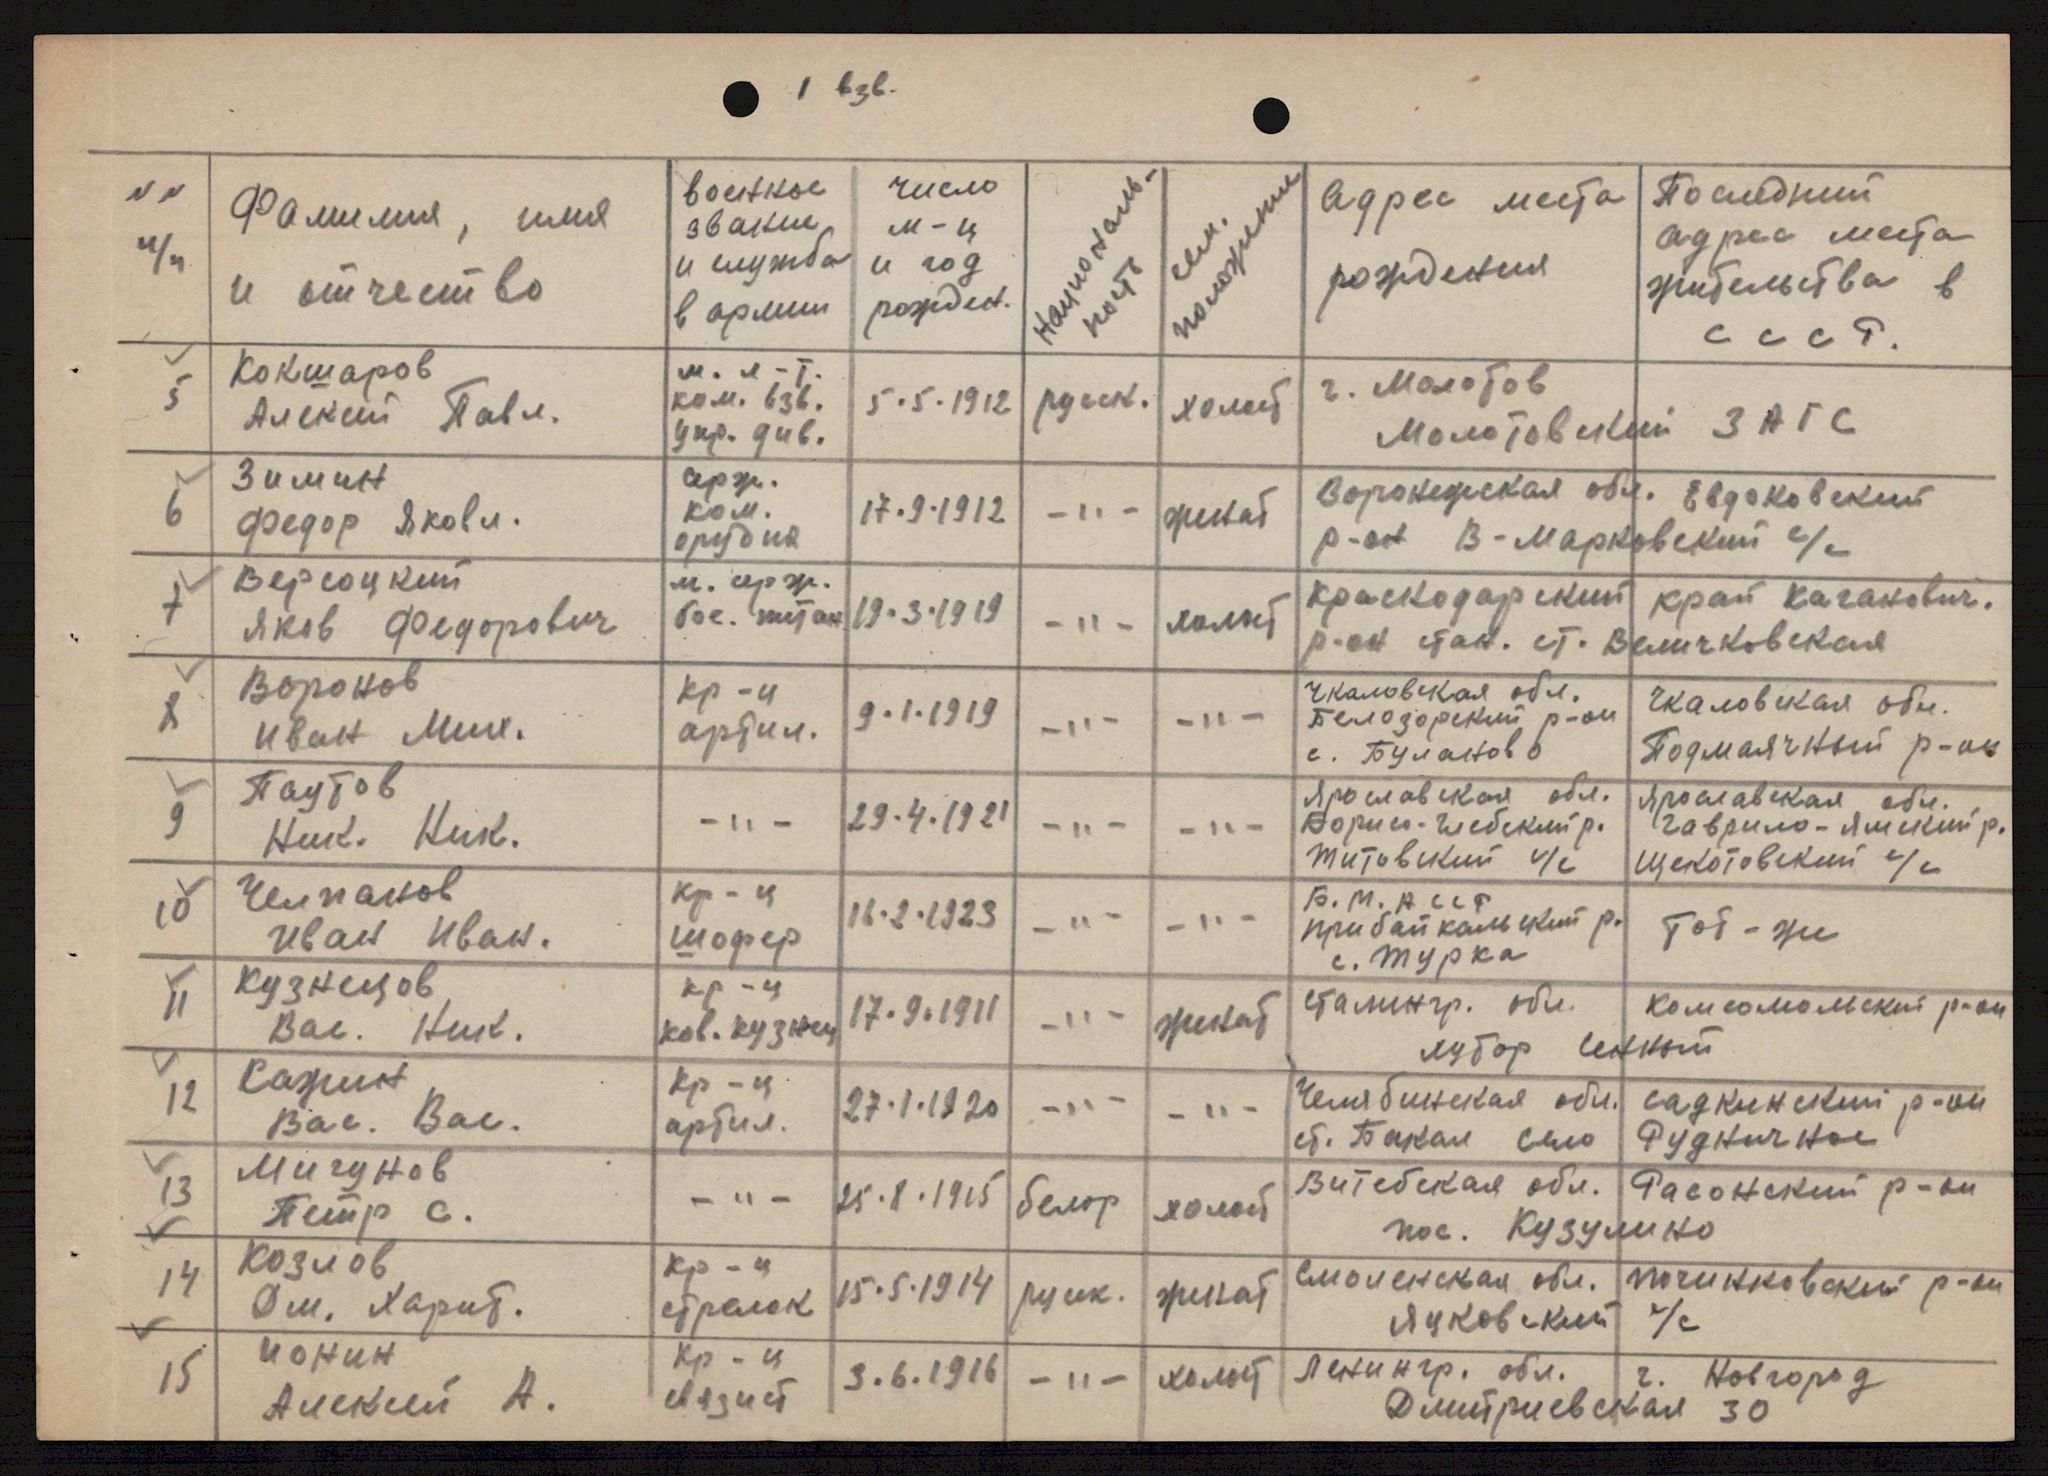 1 взв.
NN п/п
Фамилия, имя и отчество
военное звание и служба в армии
число м-ц и год рожден.
Националь-ность
сем. положение
Адрес места рождения
Последний адрес места жительства в СССР.
5 Кокшаров Алексей Павл. м. л-т. ком. взв. упр. див. 5.5.1912 русск. холост г. Молотов Молотовский ЗАГС
6 Зимин Федор Яковл. серж. ком. орудия 17.9.1912 -"- женат Воронежская обл. Евдаковский р-он В-Марковский с/с
7 Версоцкий Яков Федорович м. серж. 19.3.1919 -"- холост Краснодарский край Каганович. р-он стан. ст. Величковская
8 Воронов Иван Мих. кр-ц артил. 9.1.1919 -"- -"- Чкаловская обл. Белозорский р-он с. Буланово Чкаловская обл. Подмаячный р-он
9 Паутов Ник. Ник. -"- 29.4.1921 -"- -"- Ярославская обл. Борисо-Глебский р. Титовский с/с Ярославская обл. Гаврило-Ямский р. Щекотовский с/с
10 Челпанов Иван Иван. кр-ц шофер 16.2.1923 -"- -"- Б.М.АССР Прибайкальский р. с. Турка Тот-же
11 Кузнецов Вас. Ник. кр-ц ков. кузнец 17.9.1911 -"- женат Сталингр. обл. Комсомольский р-он хутор Сенный
12 Сажин Вас. Вас. кр-ц артил. 27.1.1920 -"- -"- Челябинская обл. Садкинский р-он ст. Бакал село Рудничное
13 Мигунов Петр С. -"- 25.8.1915 белор холост Витебская обл. Расонский р-он пос. Кузулино
14 Козлов Дм. Харит. кр-ц стрелок 15.5.1914 русск. женат Смоленская обл. Починковский р-он Яцковский с/с
15 Ионин Алексей А. кр-ц связист 3.6.1916 -"- холост Ленингр. обл. г. Новгород Дмитриевская 30